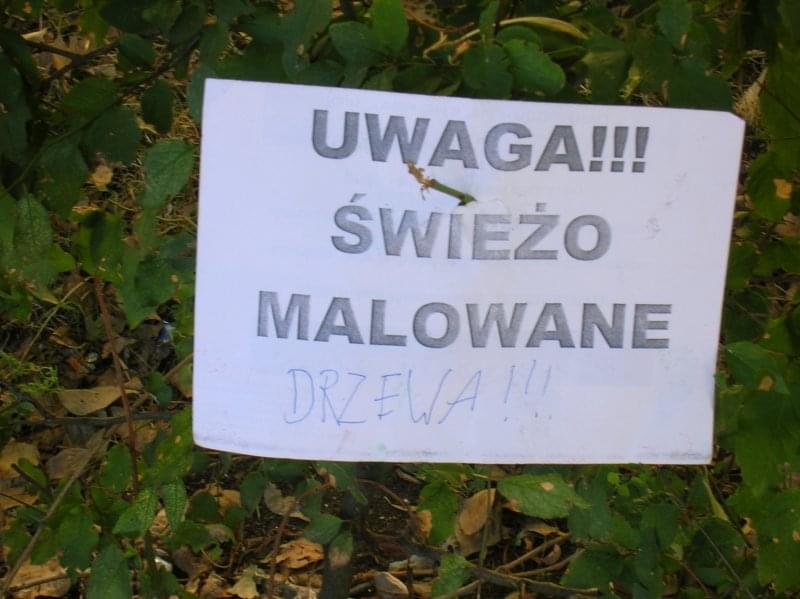 UWAGA!!!
ŚWIEŻO
MALOWANE
DRZEWA!!!